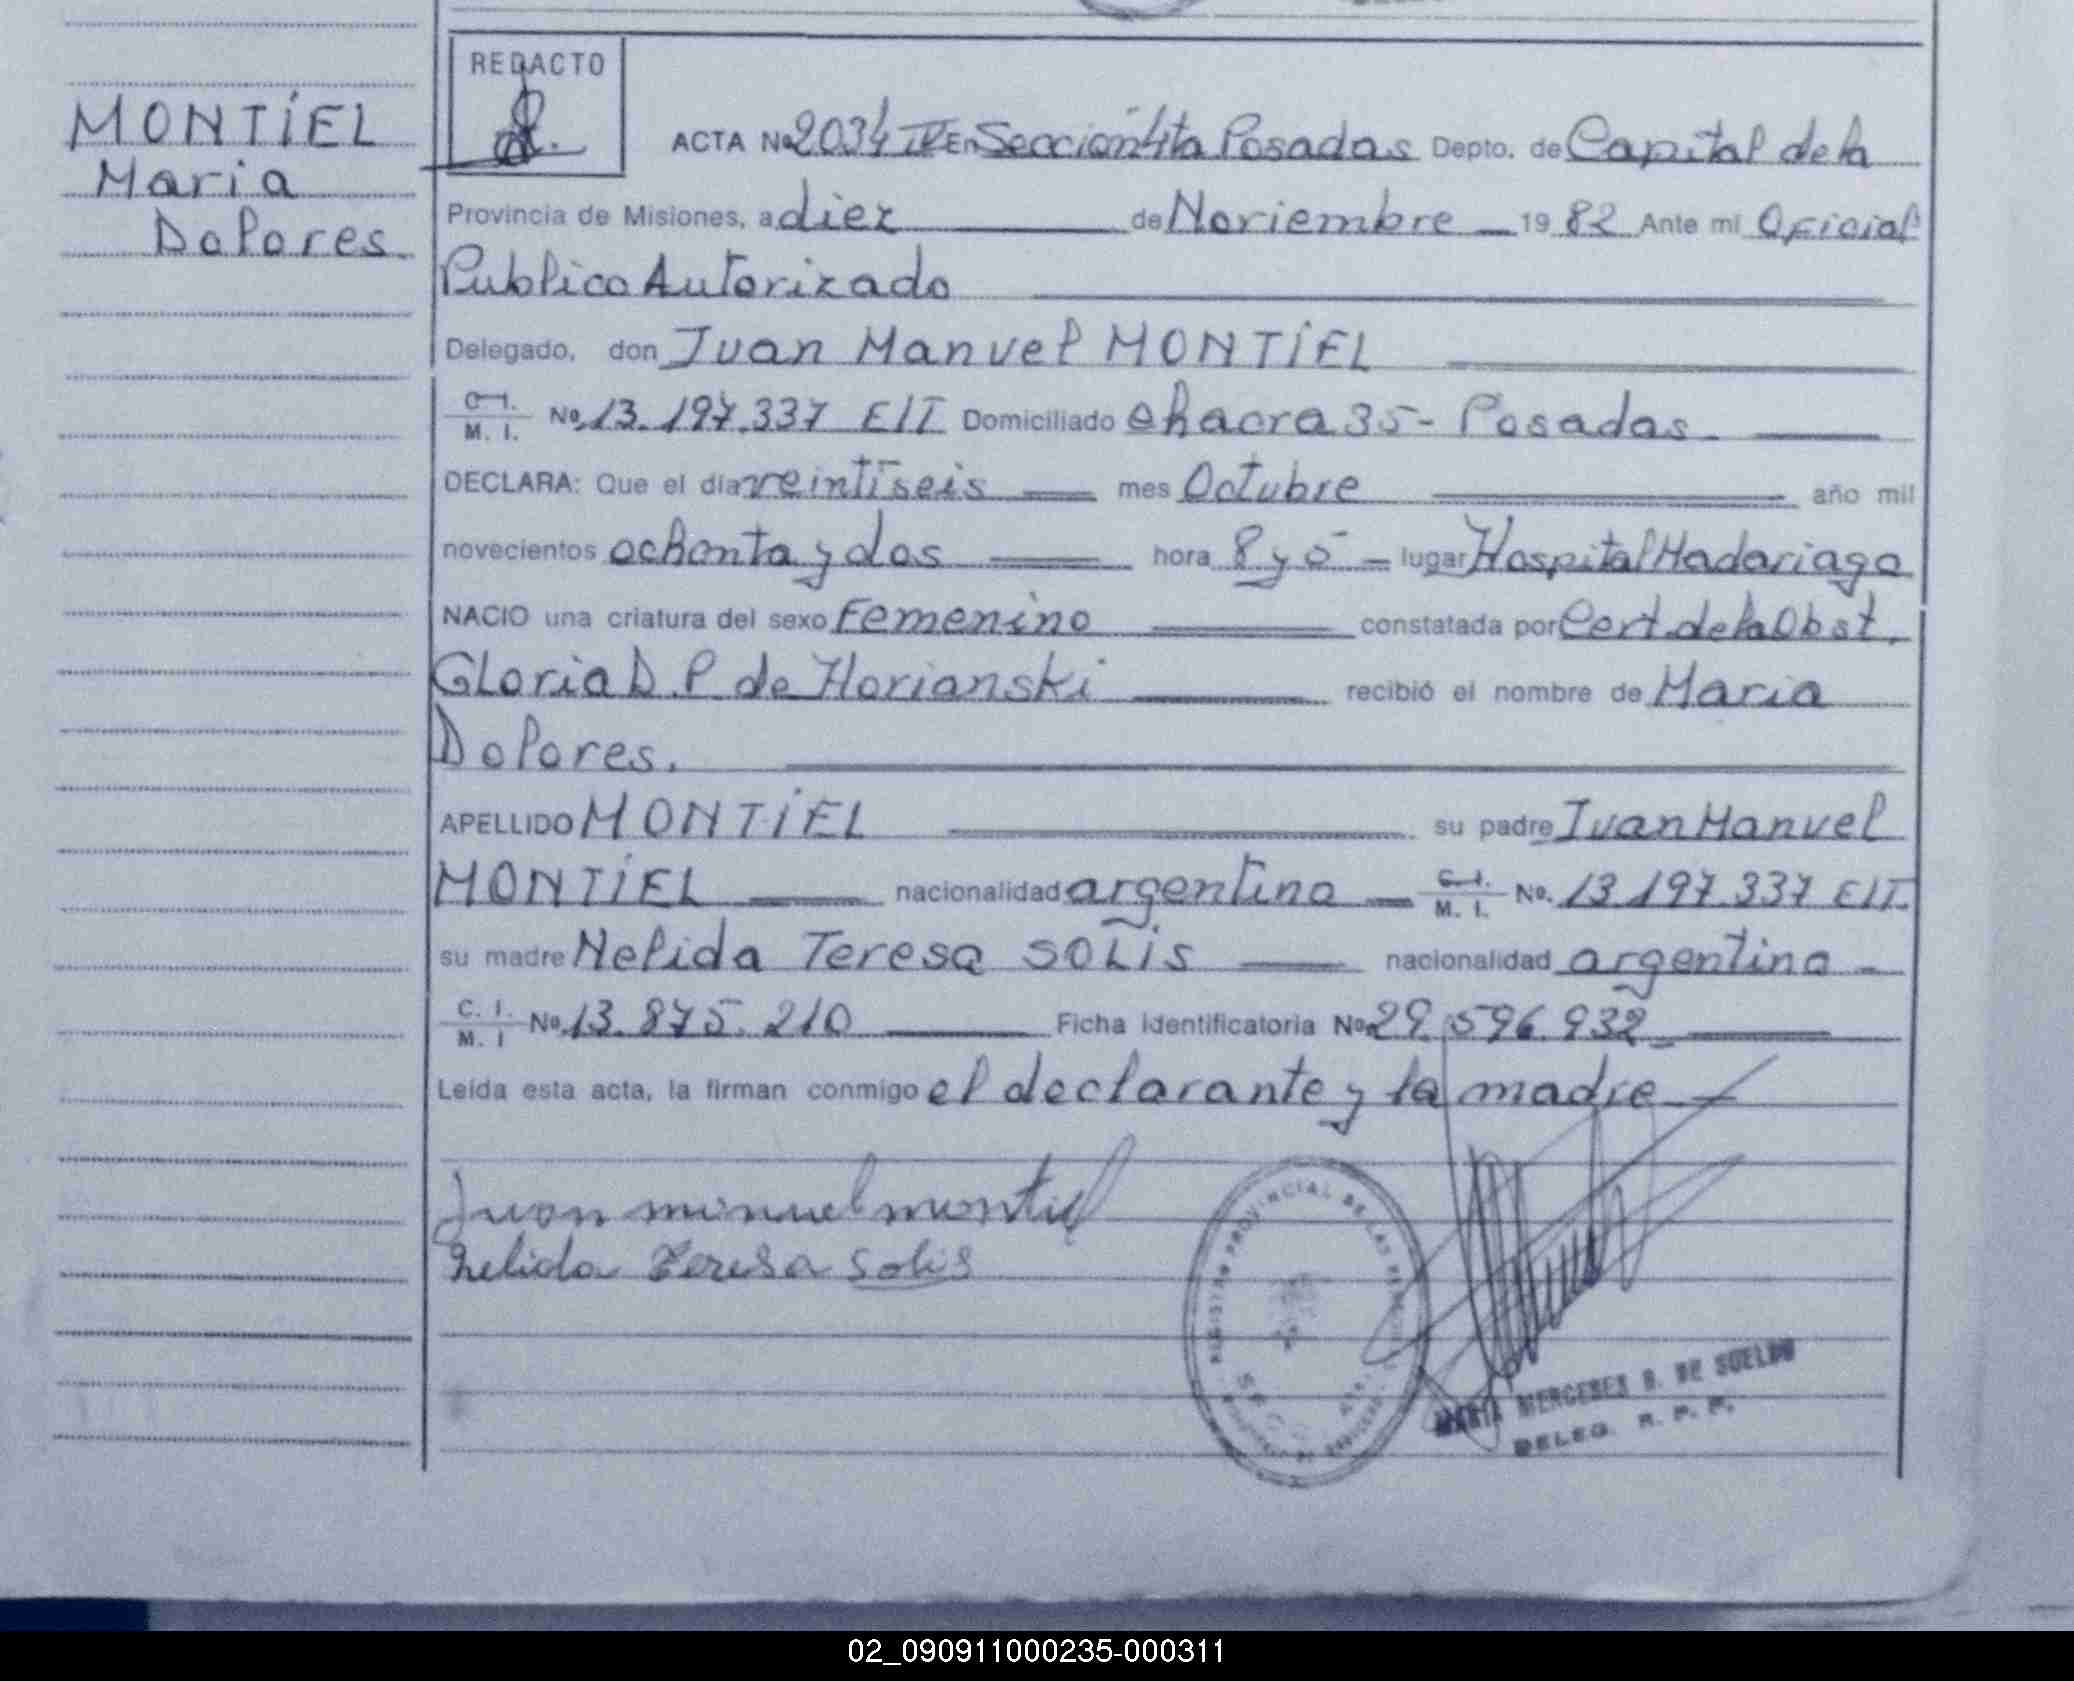 REDACTO
MONTIEL
Maria
Dolores.
ACTA No 2034 IV En Sección 4ta Posadas Depto. de Capital de la
Provincia de Misiones, a diez de Noviembre 1982 Ante mi Oficial
Publico Autorizado
Delegado, don Juan Manuel MONTIEL
C. I.
M. I. No. 13.197.337 EIT Domiciliado chacra 35 - Posadas.
DECLARA: Que el día veintiseis mes Octubre año mil
novecientos ochenta y dos hora 8 y 5 lugar Hospital Madariaga
NACIO una criatura del sexo Femenino constatada por Cert. de la Obst.
Gloria D. P. de recibió el nombre de Maria
Dolores.
APELLIDO MONTIEL su padre Juan Manuel
MONTIEL nacionalidad argentina C. I. M. I. No. 13.197.337 EIT.
su madre Nelida Teresa SOLIS nacionalidad argentina
C. I.
M. I No. 13.875.210 Ficha identificatoria No. 29.596.932
Leída esta acta, la firman conmigo el declarante y la madre
Juan manuel montiel
Nelida Teresa Solis
REGISTRO PROVINCIAL DE LAS PERSONAS
MARIA MERCEDES B. DE SUELDO
DELEG. R. P. P.
02_090911000235-000311